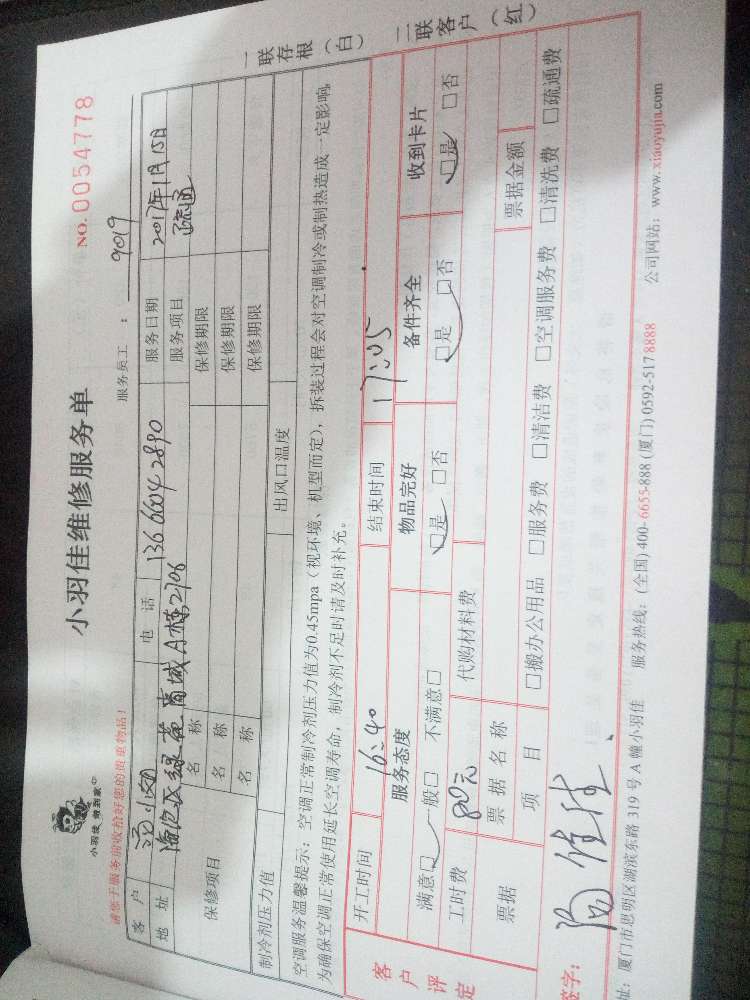 小羽佳 做到家
小羽佳维修服务单
NO. 0054778
请您于服务前收拾好您的贵重物品！
服务员工： 9019
客户 电话 13666042890 服务日期 2017年1月15日
地址 海沧区绿苑商城A栋2106 服务项目 疏通
保修项目 名称 保修期限
名称 保修期限
名称 保修期限
制冷剂压力值 出风口温度
空调服务温馨提示：空调正常制冷剂压力值为0.45mpa（视环境、机型而定），拆装过程会对空调制冷或制热造成一定影响，
为确保空调正常使用延长空调寿命，制冷剂不足时请及时补充。
一联存根（白） 二联客户（红）
客户评定
开工时间 16:40 结束时间 17:05
服务态度 物品完好 备件齐全 收到卡片
满意□ 一般□ 不满意□ □是 □否 □是 □否 □是 □否
工时费 80元 代购材料费
票据 票据名称 票据金额
项目 □搬办公用品 □服务费 □清洁费 □空调服务费 □清洗费 □疏通费
签字：
址：厦门市思明区湖滨东路 319 号 A 幢小羽佳 服务热线：(全国) 400-6655-888 (厦门) 0592-517 8888 公司网站：www.xiaoyujia.com